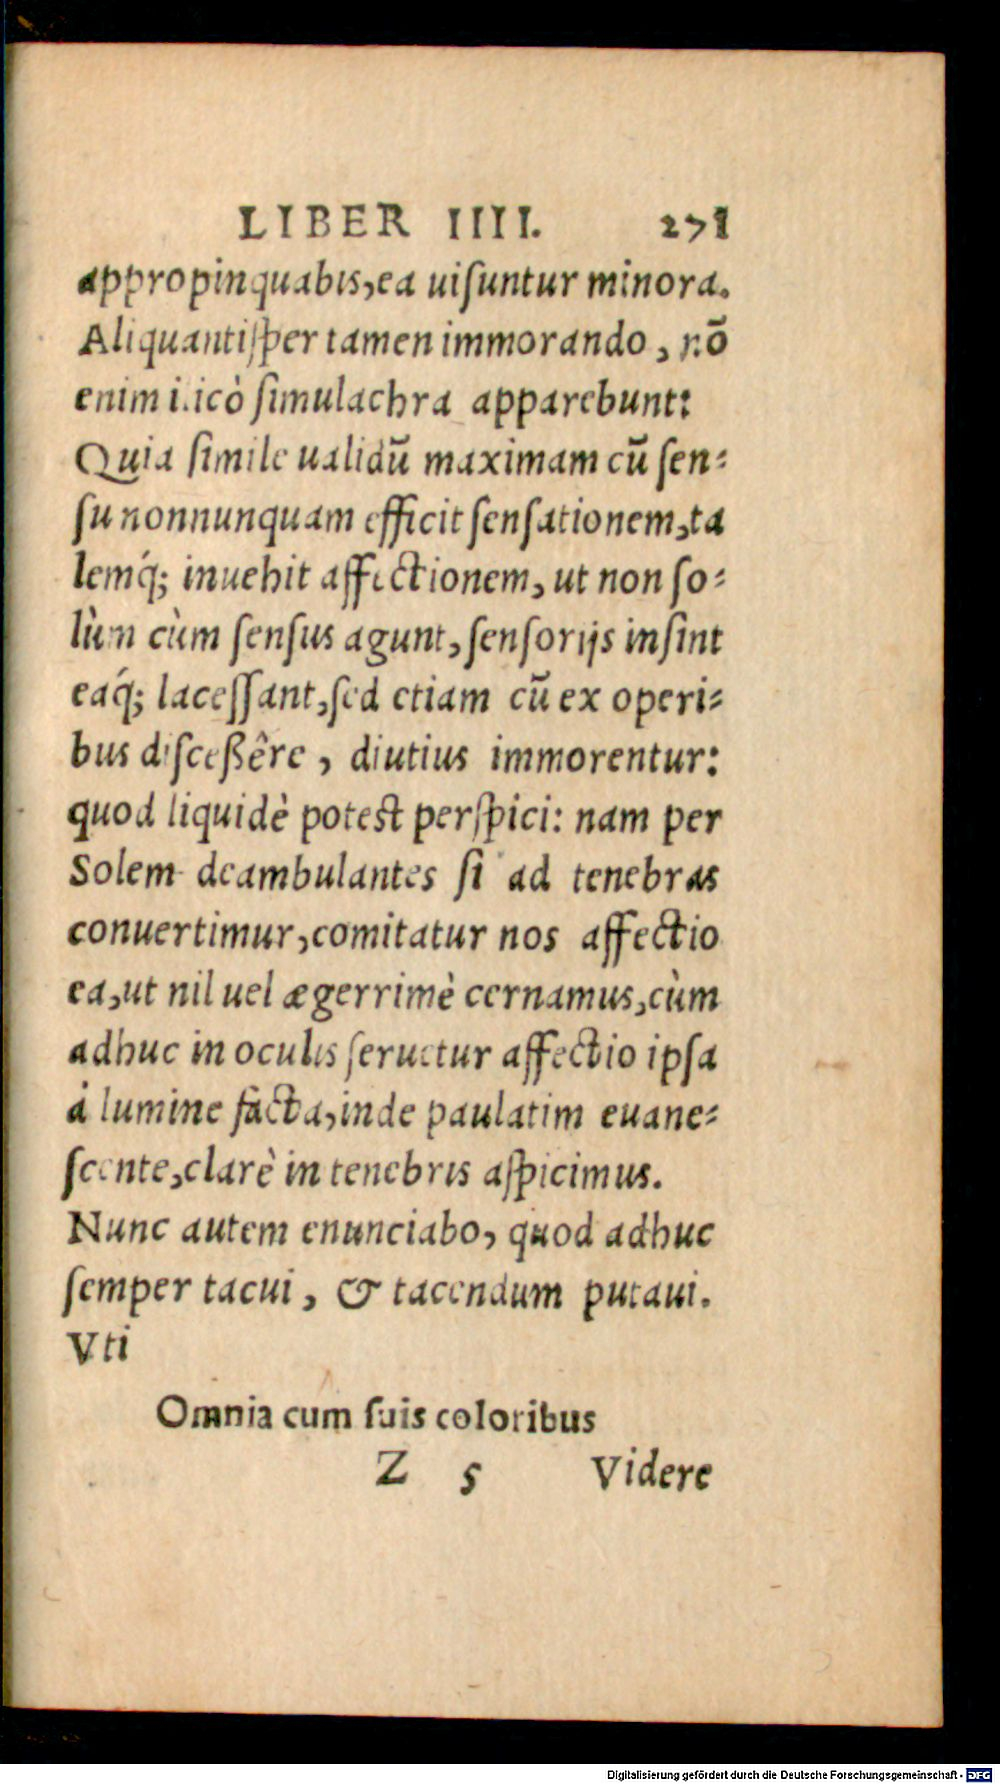 LIBER IIII. 271
appropinquabis,ea uiſuntur minora.
Aliquantiſper tamen immorando, nõ
enim ilicò ſimulachra apparebunt:
Quia ſimile ualidũ maximam cũ ſen-
ſu nonnunquam efficit ſenſationem,ta
lemq́; inuehit affectionem, ut non ſo-
lùm cùm ſenſus agunt,ſenſorijs inſint
eaq́; laceſſant,ſed etiam cũ ex operi-
bus diſceßêre, diutius immorentur:
quod liquidè poteſt perſpici: nam per
Solem deambulantes ſi ad tenebras
conuertimur,comitatur nos affectio
ea,ut nil uel ægerrimè cernamus,cùm
adhuc in oculis ſeruetur affectio ipſa
à lumine facta,inde paulatim euane-
ſcente,clarè in tenebris aſpicimus.
Nunc autem enunciabo, quod adhuc
ſemper tacui, & tacendum putaui.
Vti
Omnia cum ſuis coloribus
Z 5 Videre
Digitalisierung gefördert durch die Deutsche Forschungsgemeinschaft - DFG